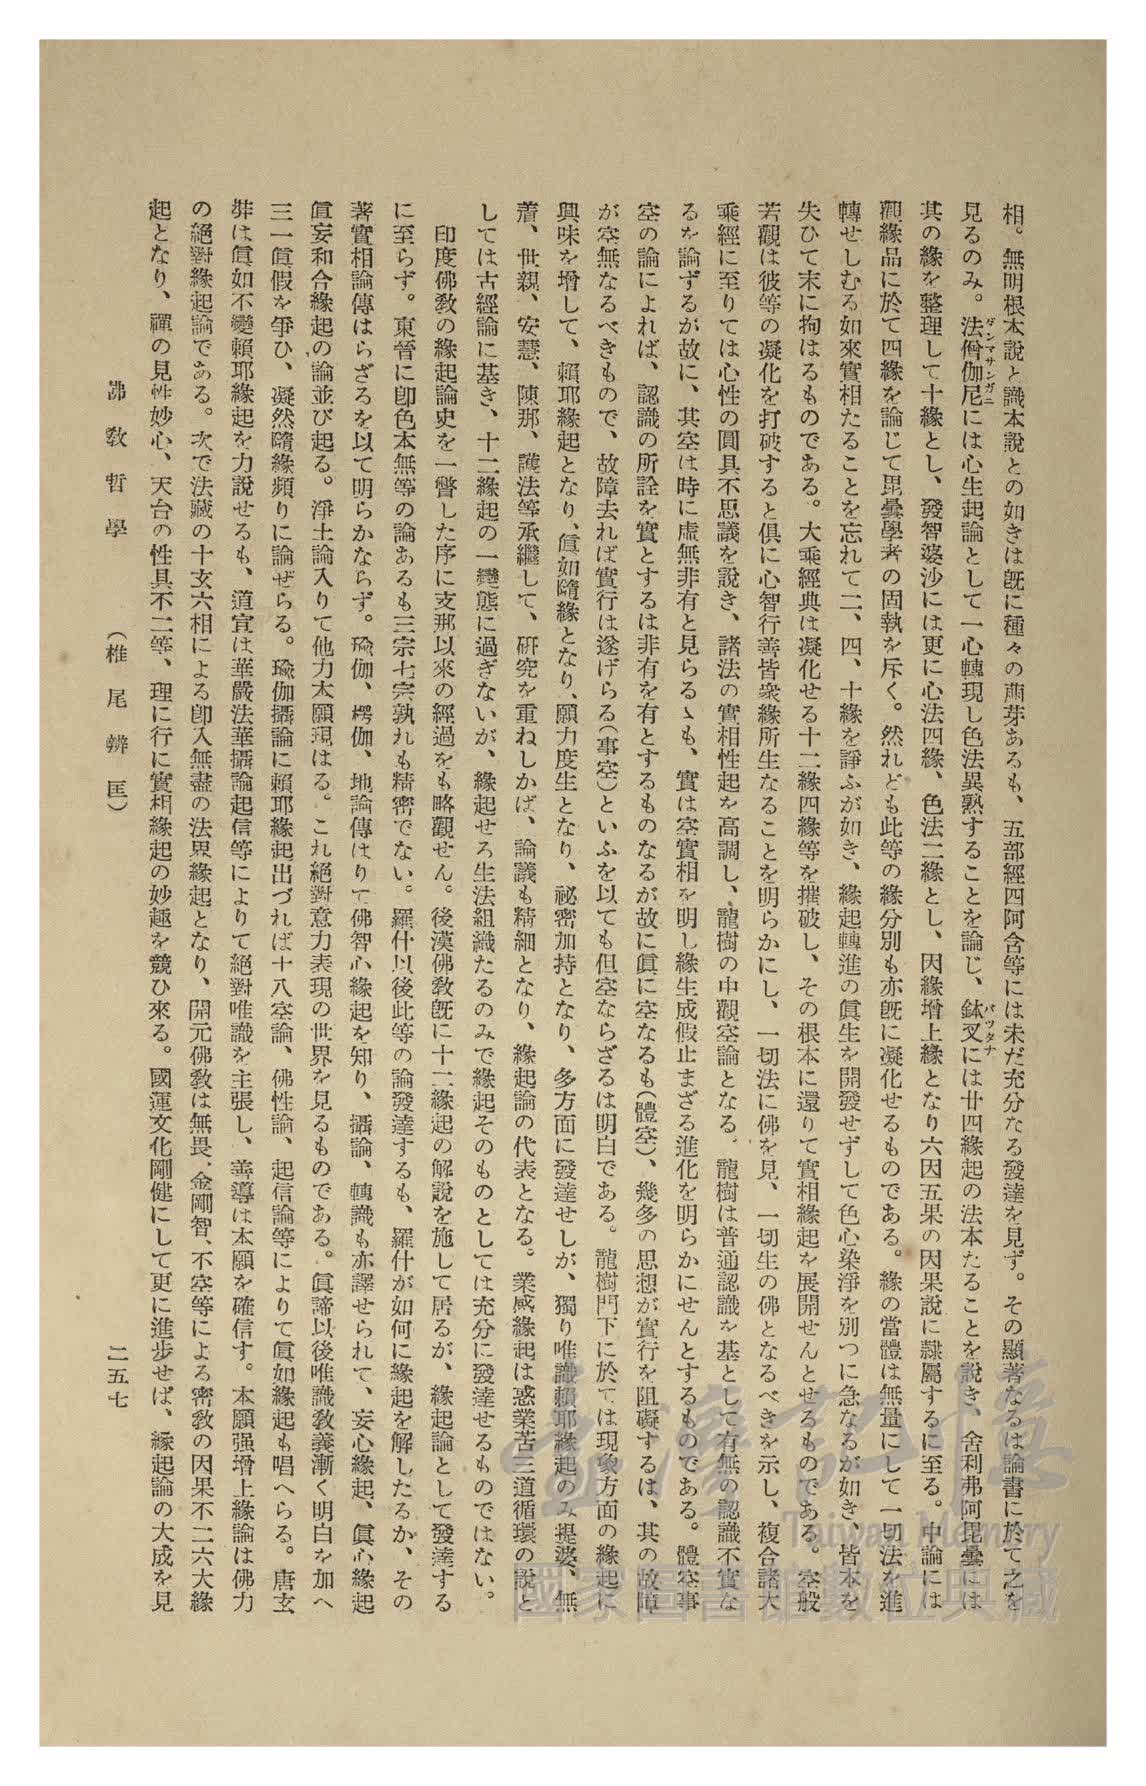 相。無明根本說と識本說との如きは旣に種々の萠芽あるも、五部經四阿含等には未だ充分なる發達を見ず。その顯著なるは論書に於て之を
見るのみ。法僧伽尼には心生起論として一心轉現し色法異熟することを論じ、鉢叉には廿四緣起の法本たることを說き、舍利弗阿毘曇には
ダンマサンガニ
パツタナ
其の緣を整理して十緣とし、發智婆沙には更に心法四緣、色法二緣とし、因緣增上緣となり六因五果の因果說に隸屬するに至る。中論には
觀緣品に於て四緣を論じて毘曇學者の固執を斥く。然れども此等の緣分別も亦旣に凝化せるものである。緣の當體は無量にして一切法を進
轉せしむる如來實相たることを忘れて二、四、十緣を諍ふが如き、緣起轉進の眞生を開發せずして色心染淨を別つに急なるが如き、皆本を
失ひて末に拘はるものである。大乘經典は凝化せる十二緣四緣等を摧破し、その根本に還りて實相緣起を展開せんとせるものである。空般
若觀は彼等の凝化を打破すると俱に心智行善皆衆緣所生なることを明らかにし、一切法に佛を見、一切生の佛となるべきを示し、複合諸大
乘經に至りては心性の圓具不思議を說き、諸法の實相性起を高調し、龍樹の中觀空論となる。龍樹は普通認識を基として有無の認識不實な
るを論ずるが故に、其空は時に虛無非有と見らるゝも、實は空實相を明し緣生成假止まざる進化を明らかにせんとするものである。體空事
空の論によれば、認識の所詮を實とするは非有を有とするものなるが故に眞に空なるも(體空)、幾多の思想が實行を阻礙するは、其の故障
が空無なるべきもので、故障去れば實行は遂げらる(事空)といふを以ても但空ならざるは明白である。龍樹門下に於ては現象方面の緣起に
興味を增して、賴耶緣起となり、眞如隨緣となり、願力度生となり、祕密加持となり、多方面に發達せしが、獨り唯識賴耶緣起のみ提婆、無
着、世親、安慧、陳那、護法等承繼して、硏究を重ねしかば、論議も精細となり、緣起論の代表となる。業感緣起は惑業苦三道循環の說と
しては古經論に基き、十二緣起の一變態に過ぎないが、緣起せる生法組織たるのみで緣起そのものとしては充分に發達せるものではない。
印度佛敎の緣起論史を一瞥した序に支那以來の經過をも略觀せん。後漢佛敎旣に十二緣起の解說を施して居るが、緣起論として發達する
に至らず。東晉に卽色本無等の論あるも三宗七宗孰れも精密でない。羅什以後此等の論發達するも、羅什が如何に緣起を解したるか、その
著實相論傳はらざるを以て明らかならず。瑜伽、楞伽、地論傳はりて佛智心緣起を知り、攝論、轉識も亦譯せられて、妄心緣起、眞心緣起
眞妄和合緣起の論並び起る。淨土論入りて他力本願現はる。これ絕對意力表現の世界を見るものである。眞諦以後唯識敎義漸く明白を加へ
三一眞假を爭ひ、凝然隨緣頻りに論ぜらる。瑜伽攝論に賴耶緣起出づれば十八空論、佛性論、起信論等によりて眞如緣起も唱へらる。唐玄
弉は眞如不變賴耶緣起を力說せるも、道宣は華嚴法華攝論起信等によりて絕對唯識を主張し、善導は本願を確信す。本願强增上緣論は佛力
の絕對緣起論である。次で法藏の十玄六相による卽入無盡の法界緣起となり、開元佛敎は無畏、金剛智、不空等による密敎の因果不二六大緣
起となり、禪の見性妙心、天台の性具不二等、理に行に實相緣起の妙趣を競ひ來る。國運文化剛健にして更に進步せば、緣起論の大成を見
佛敎哲學 (椎尾辨匡)
二五七
臺灣記憶
Taiwan Memory
國家圖書館數位典藏